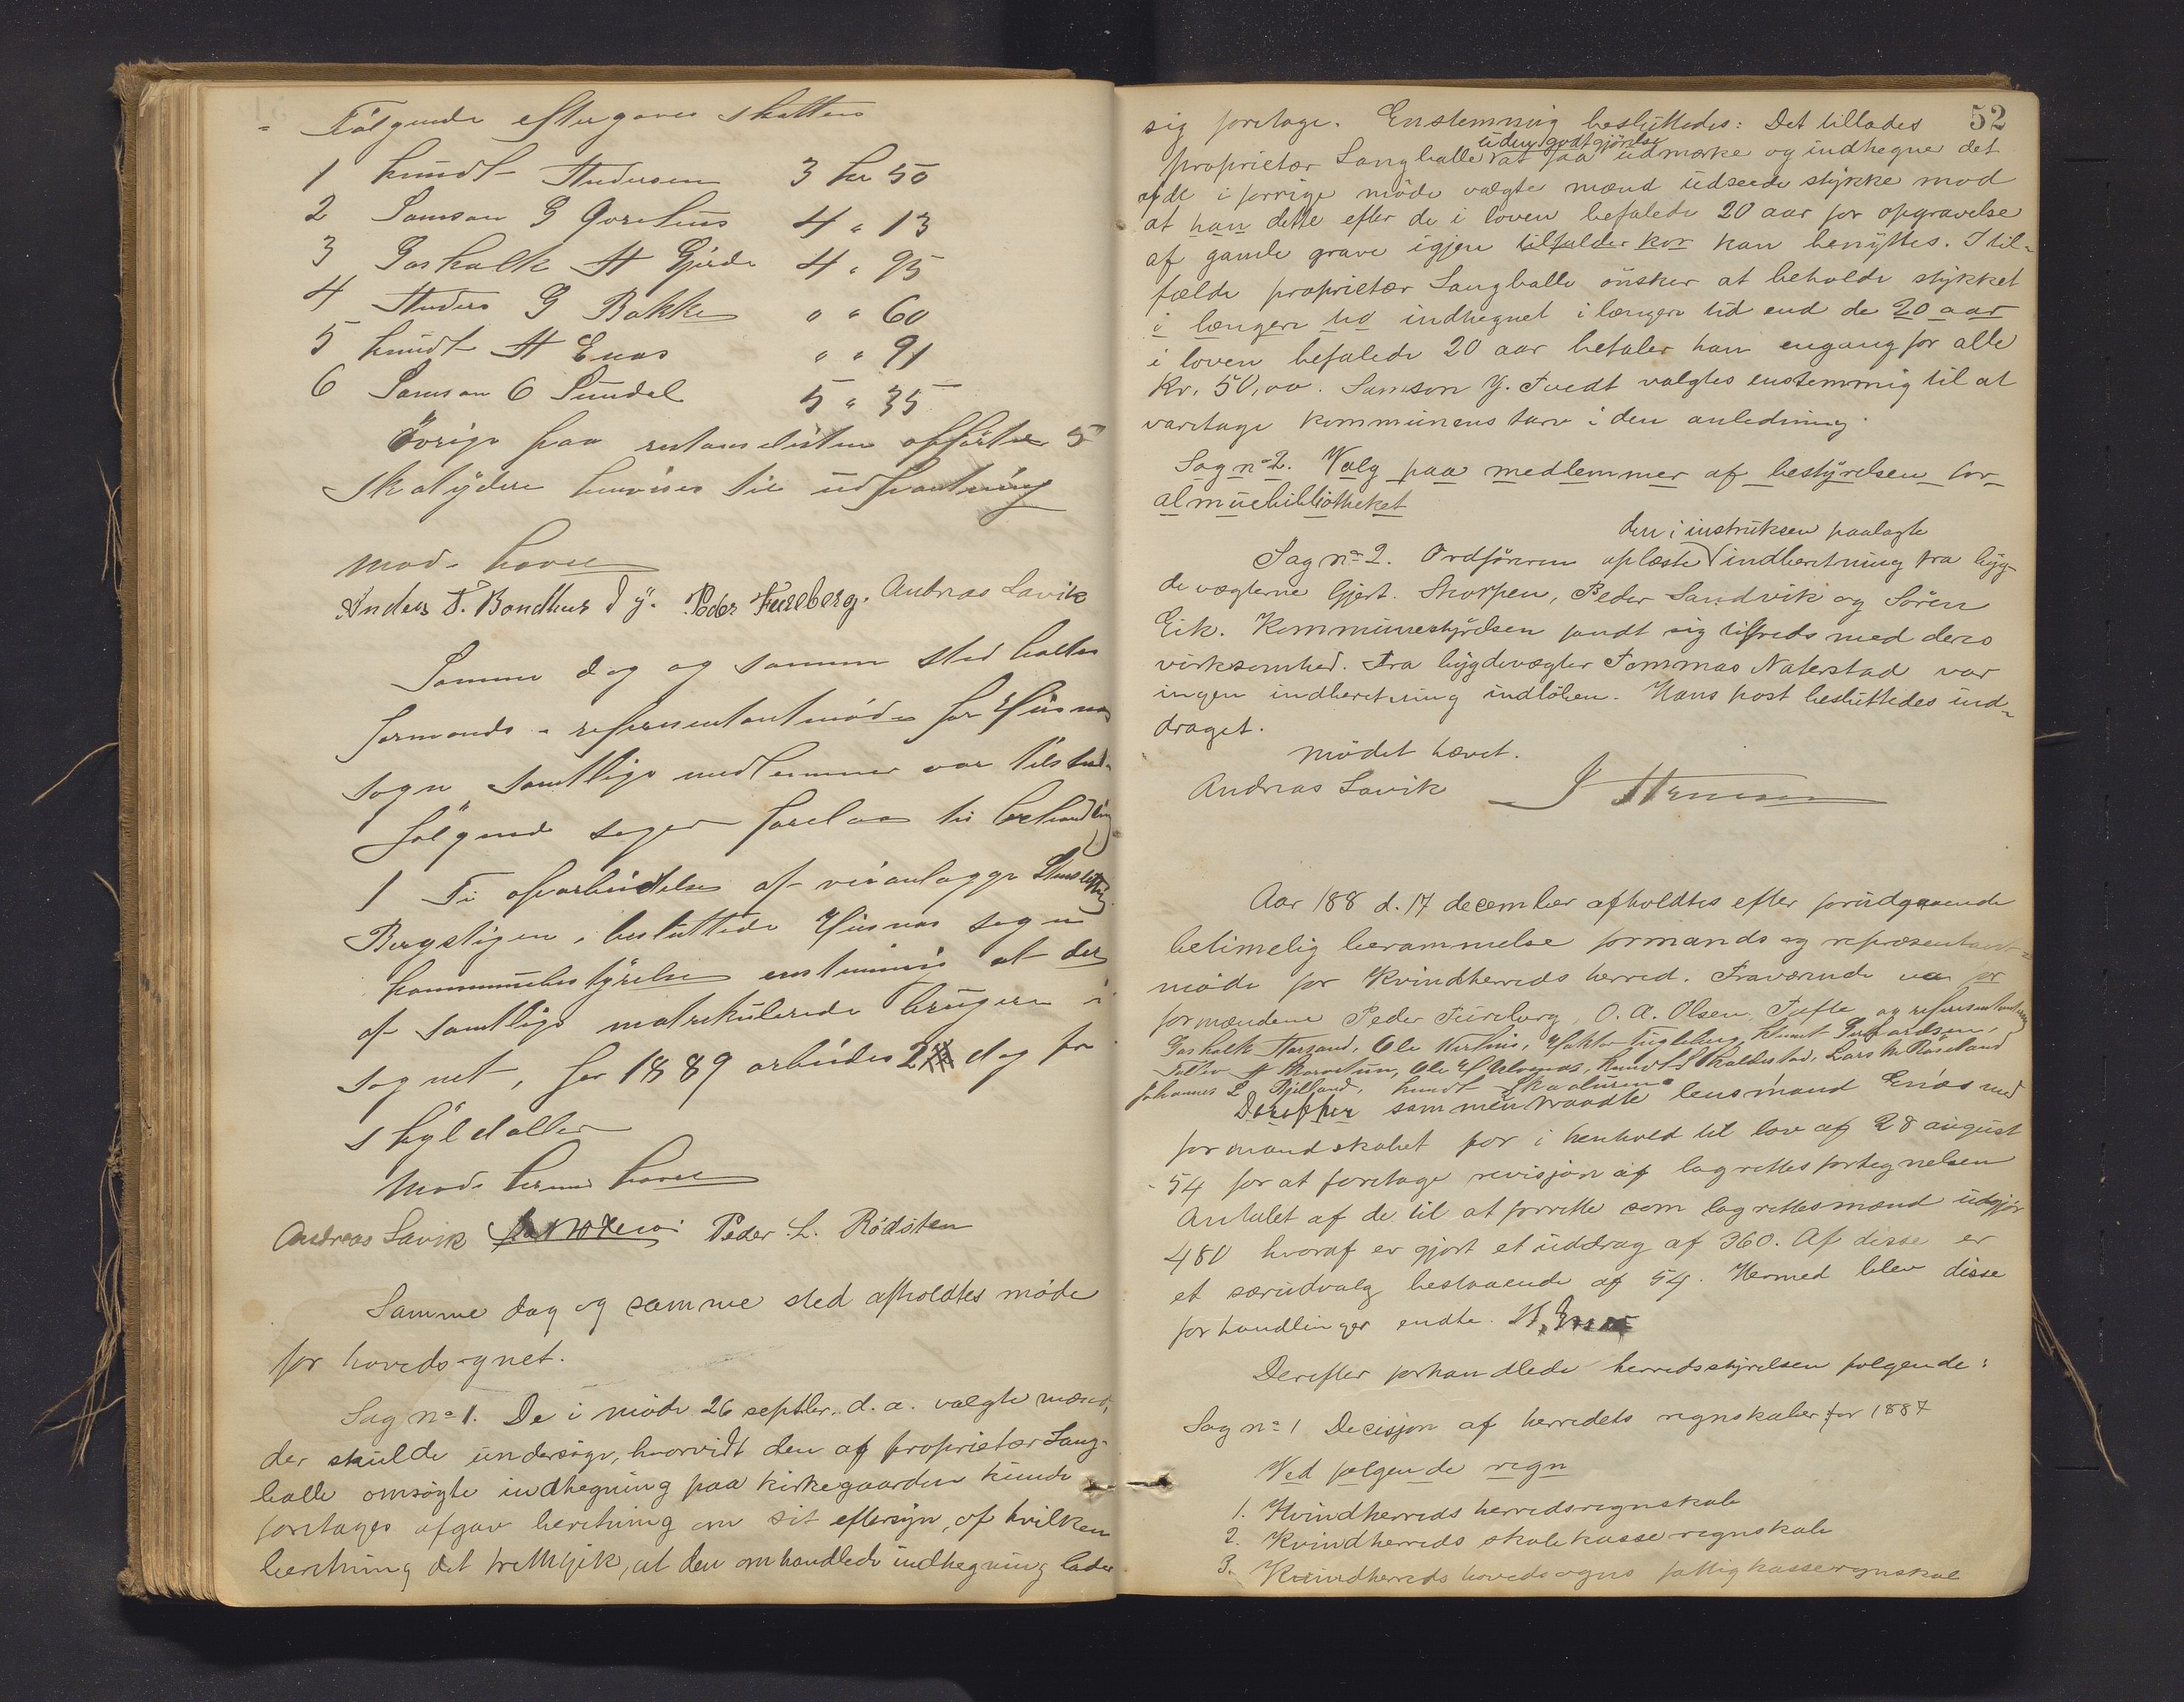 Følgende eftergaves skatten
1 Knudt Andersen 3 kr 50
2 Samson G 4 " 13
3 Goskalk A Gjerde 4 " 95
4 Anders G Bakke " " 60
5 Knudt A Enæs " " 91
6 Samson O Sundal 5 " 35
Övrige paa restanselisten opförte
skatydere henvises til udpantning
Möde hævet
Anders T. Bondhus d y. Peder Fureberg. Andreas Savik
Samme dag og samme sted holtes
formands - representantmöde for Husnes
sogn samtlige medlemmer var tilstede
følgende sager forelaa til behandling
1 Ti oparbeidelse af veianlægge
Bergstigen, besluttede Husnes sogn
kommunebestyrelse enstemmig at der
af samtlige matrikulerede brugere i
sognet, for 1889 arbeides 2 dag pr
skyldaller
Möde hermed hævet
Andreas Savik Peder L. Rödsten
Samme dag og samme sted afholdtes möde
for hovedsognet.
Sag no 1. De i möde 26 septbr. d. a. valgte mænd,
der skulde undersöge, hvorvidt den af proprietær Lang-
balle omsögte indhegning paa kirkegaarden kunde
foretages afgav beretning om sit eftersyn, af hvilken
beretning det fremgik, at den omhandlede indhegning lader
52
sig foretage. Enstemmig besluttedes: Det tillades
uden godtgjörelse
proprietær Langballe at faa udmærke og indhegne det
af de i forrige möde valgte mænd udseede stykke mod
at han dette efter de i loven befalede 20 aar for opgravelse
af gamle grave igjen tilfalder kor kan benyttes. I til-
fælde proprietær Langballe önsker at beholde stykket
i længere tid indhegnet i længere tid end de 20 aar
i loven befalede 20 aar betaler han engang for alle
Kr. 50,00. Samson G. Tvedt valgtes enstemmig til at
varetage kommunens tarv i den anledning.
Sag no 2. Valg paa medlemmer af bestyrelsen for
almuebibliotheket
den i instruksen paalagte
Sag no 2. Ordföreren oplæste indberetning fra byg-
devægterne Gjert. Skorpen, Peder Sandvik og Sören
Eik. Kommunestyrelsen fandt sig tilfreds med deres
virksomhed. Fra bygdevægter Tommas Naterstad var
ingen indberetning indlöben. Hans post besluttedes ind-
draget.
Mödet hævet.
Andreas Savik
Aar 188 d. 17 december afholdtes efter forudgaaende
betimelig berammelse formands og repræsentant-
möde for Kvindherreds herred. Fraværende var for
formændene Peder Fureberg, O. A. Olsen Tufte og representanterne
Goskalk Ole Knut
Ole H Knudt Skaldestad, Lars M Röseland
Johannes L Bjelland, Knudt
Derefter sammentraadte lensmand Enæs med
formandskabet for i henhold til lov af 28 august
-54 for at foretage revisjon af lagrettesfortegnelsen
Antalet af de til at forrette som lagrettesmænd udgjör
480 hvoraf er gjort et uddrag af 360. Af disse er
et særudvalg bestaaende af 54. Hermed blev disse
forhandlinger endte.
Derefter forhandlede herredsstyrelsen følgende:
Sag no 1 Decisjon af herredets regnskaber for 1887
Ved følgende regn
1. Kvindherreds herredsregnskab
2. Kvindherreds skolekasseregnskab
3. Kvindherreds hovedsogns fattigkasseregnskab